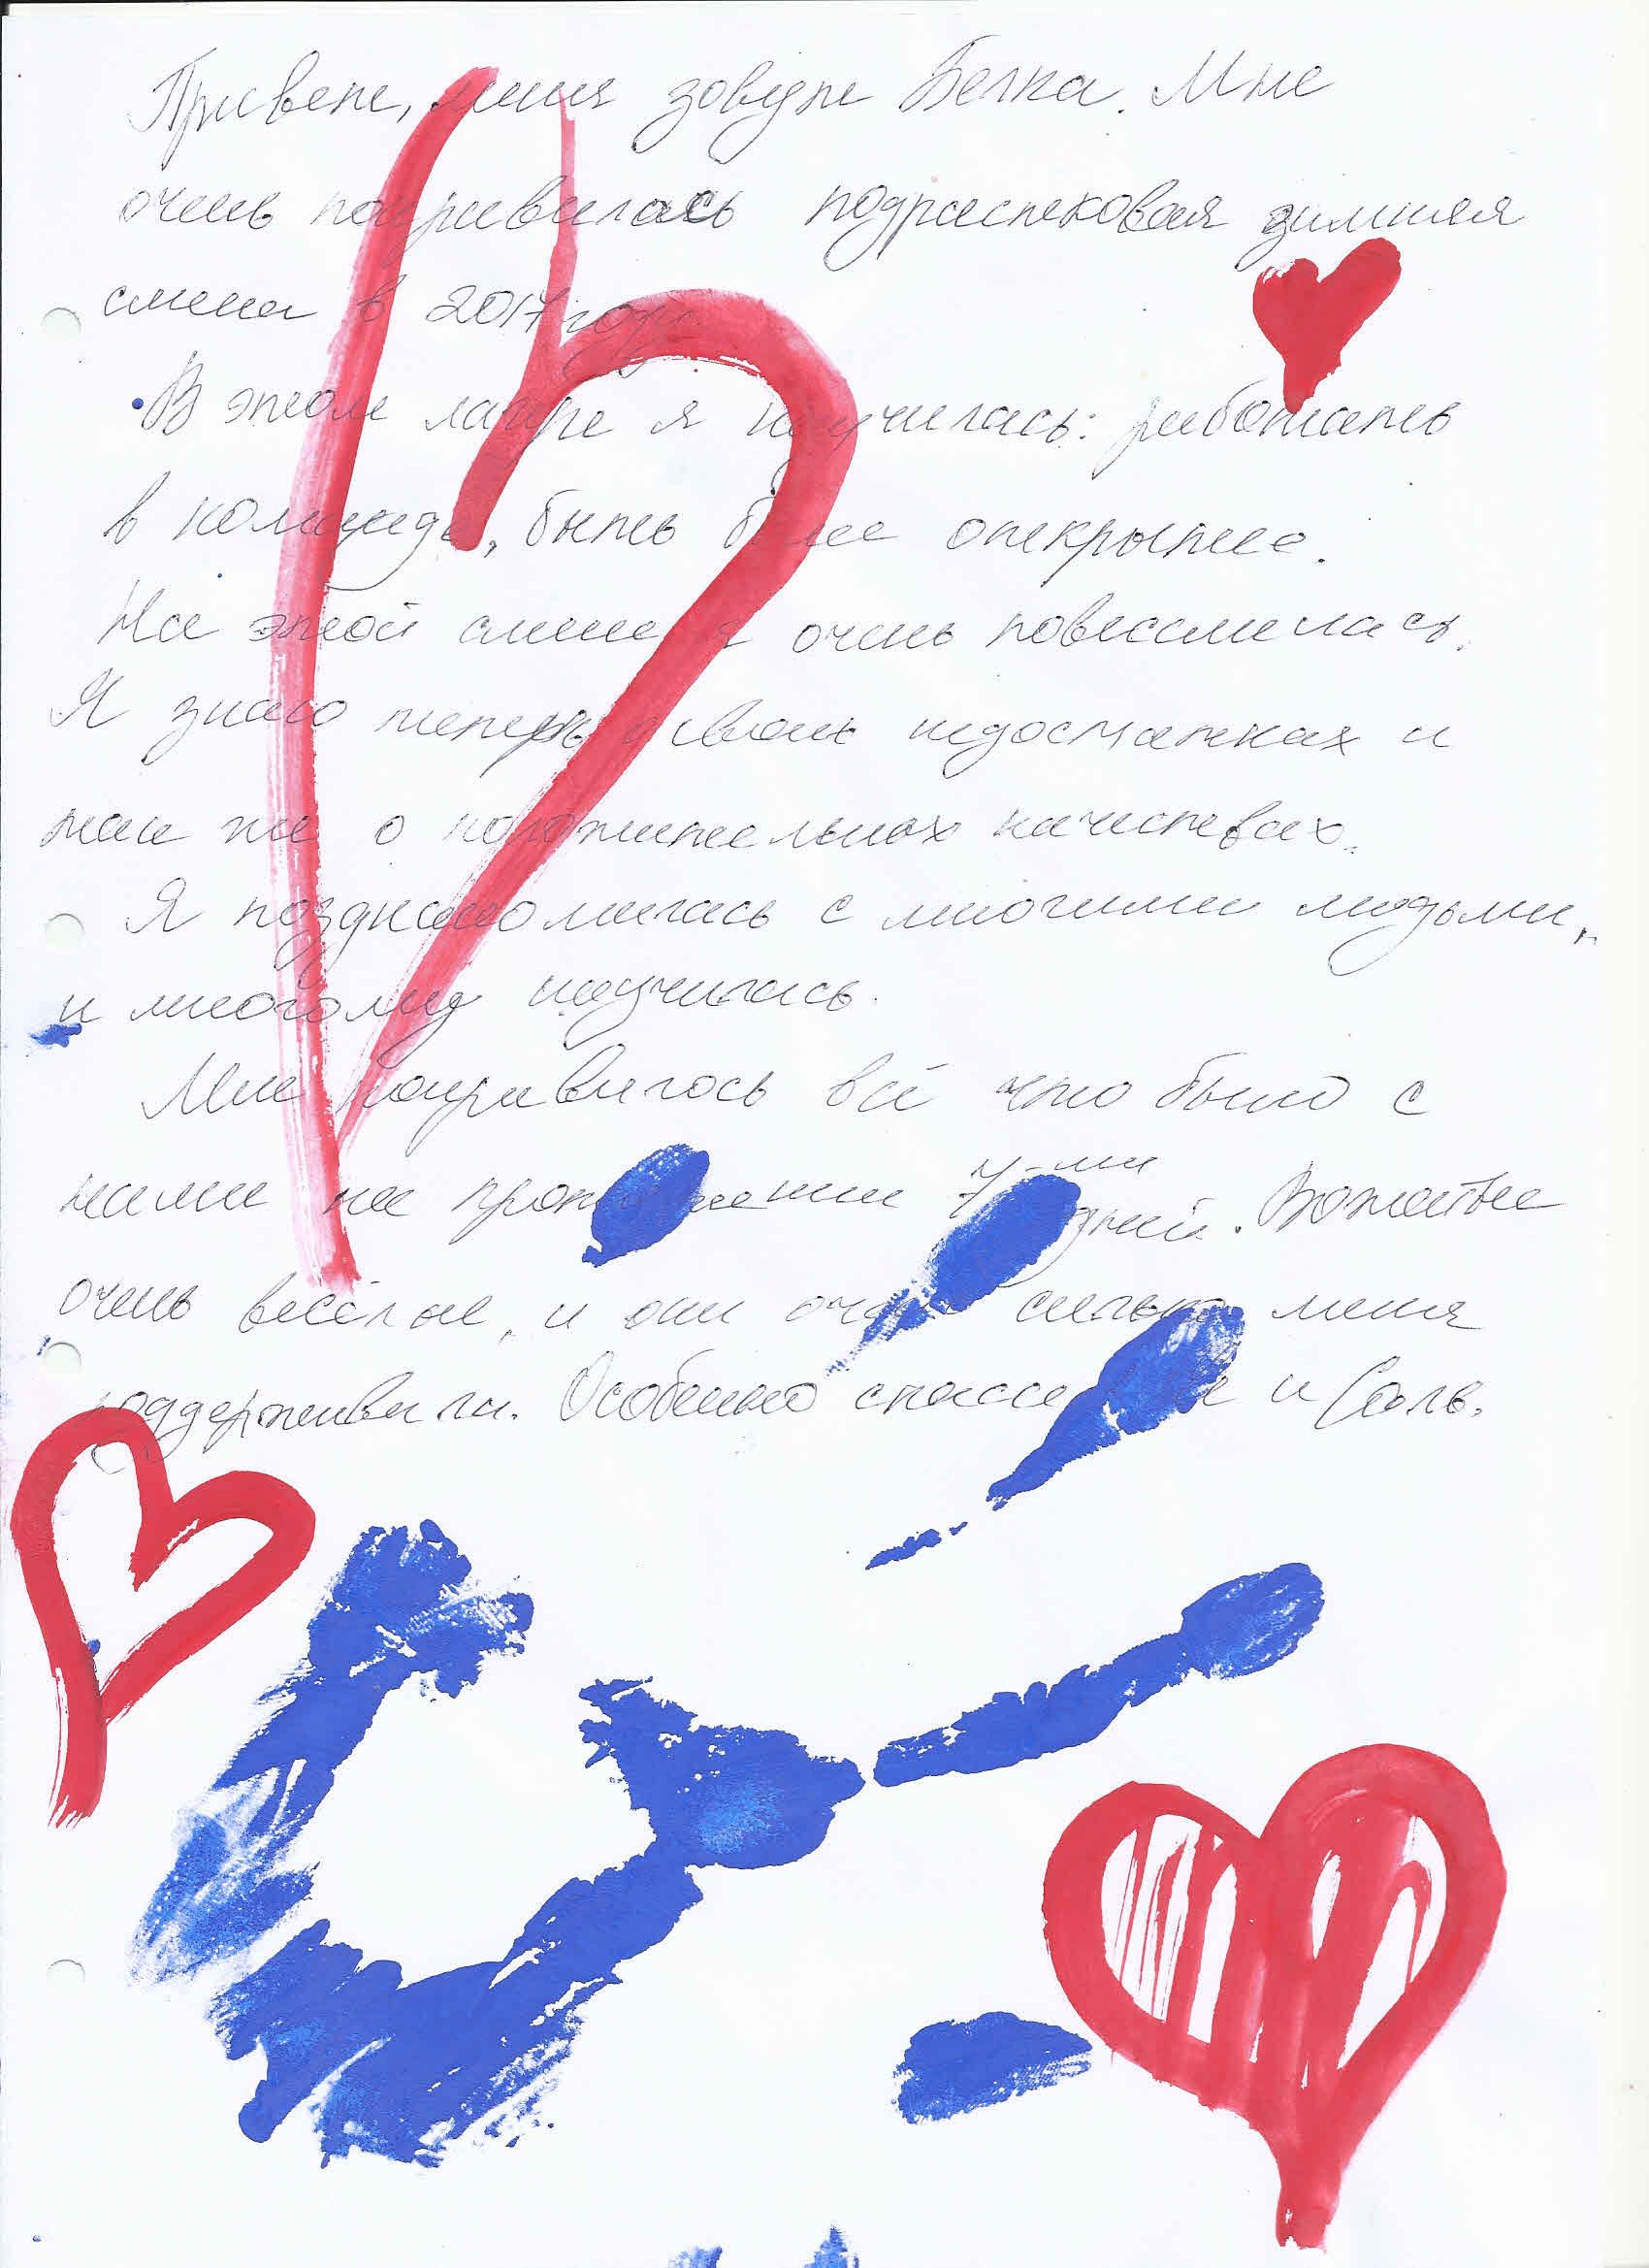 Привет, меня зовут Белка. Мне
очень понравилась подростковая зимняя
смена в 2017 году
В этом лагере я научилась: работать
в команде, быть более открытее.
На этой смене я очень повеселилась.
Я знаю теперь о своих недостатках и
так же о положительных качествах.
Я поздномилась с многими людьми,
и многому научилась.
Мне понравилось всё что было с
нами на протяжении 7-ми дней. Вожатые
очень весёлые, и они очень сильно меня
поддерживали. Особенно спасс и Соль.